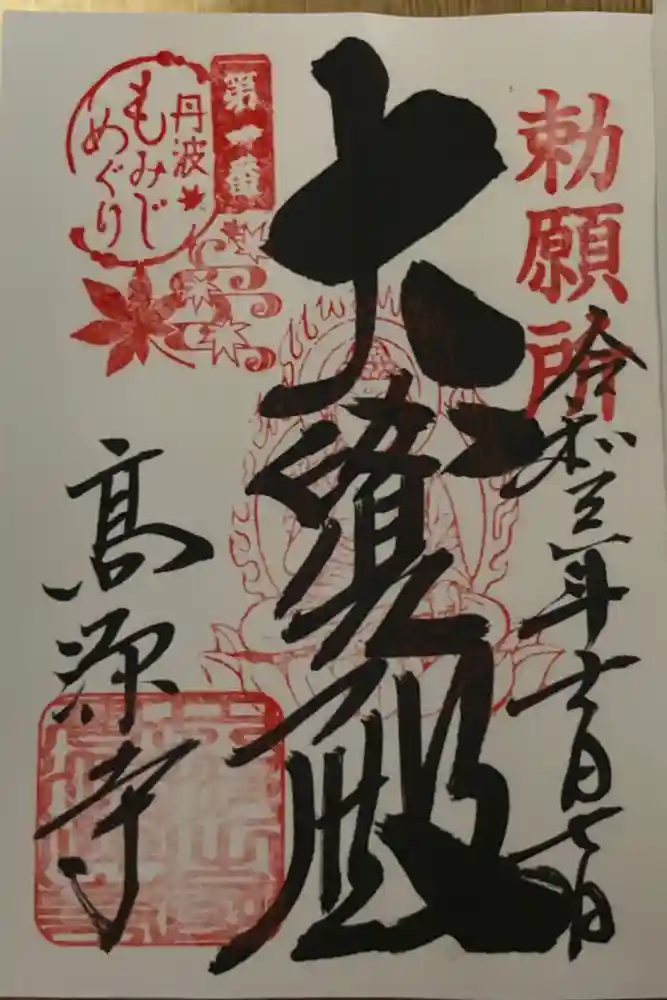 勅願所
令和三年十一月七日
大寶殿
第十番
丹波
もみじ
めぐり
高源寺